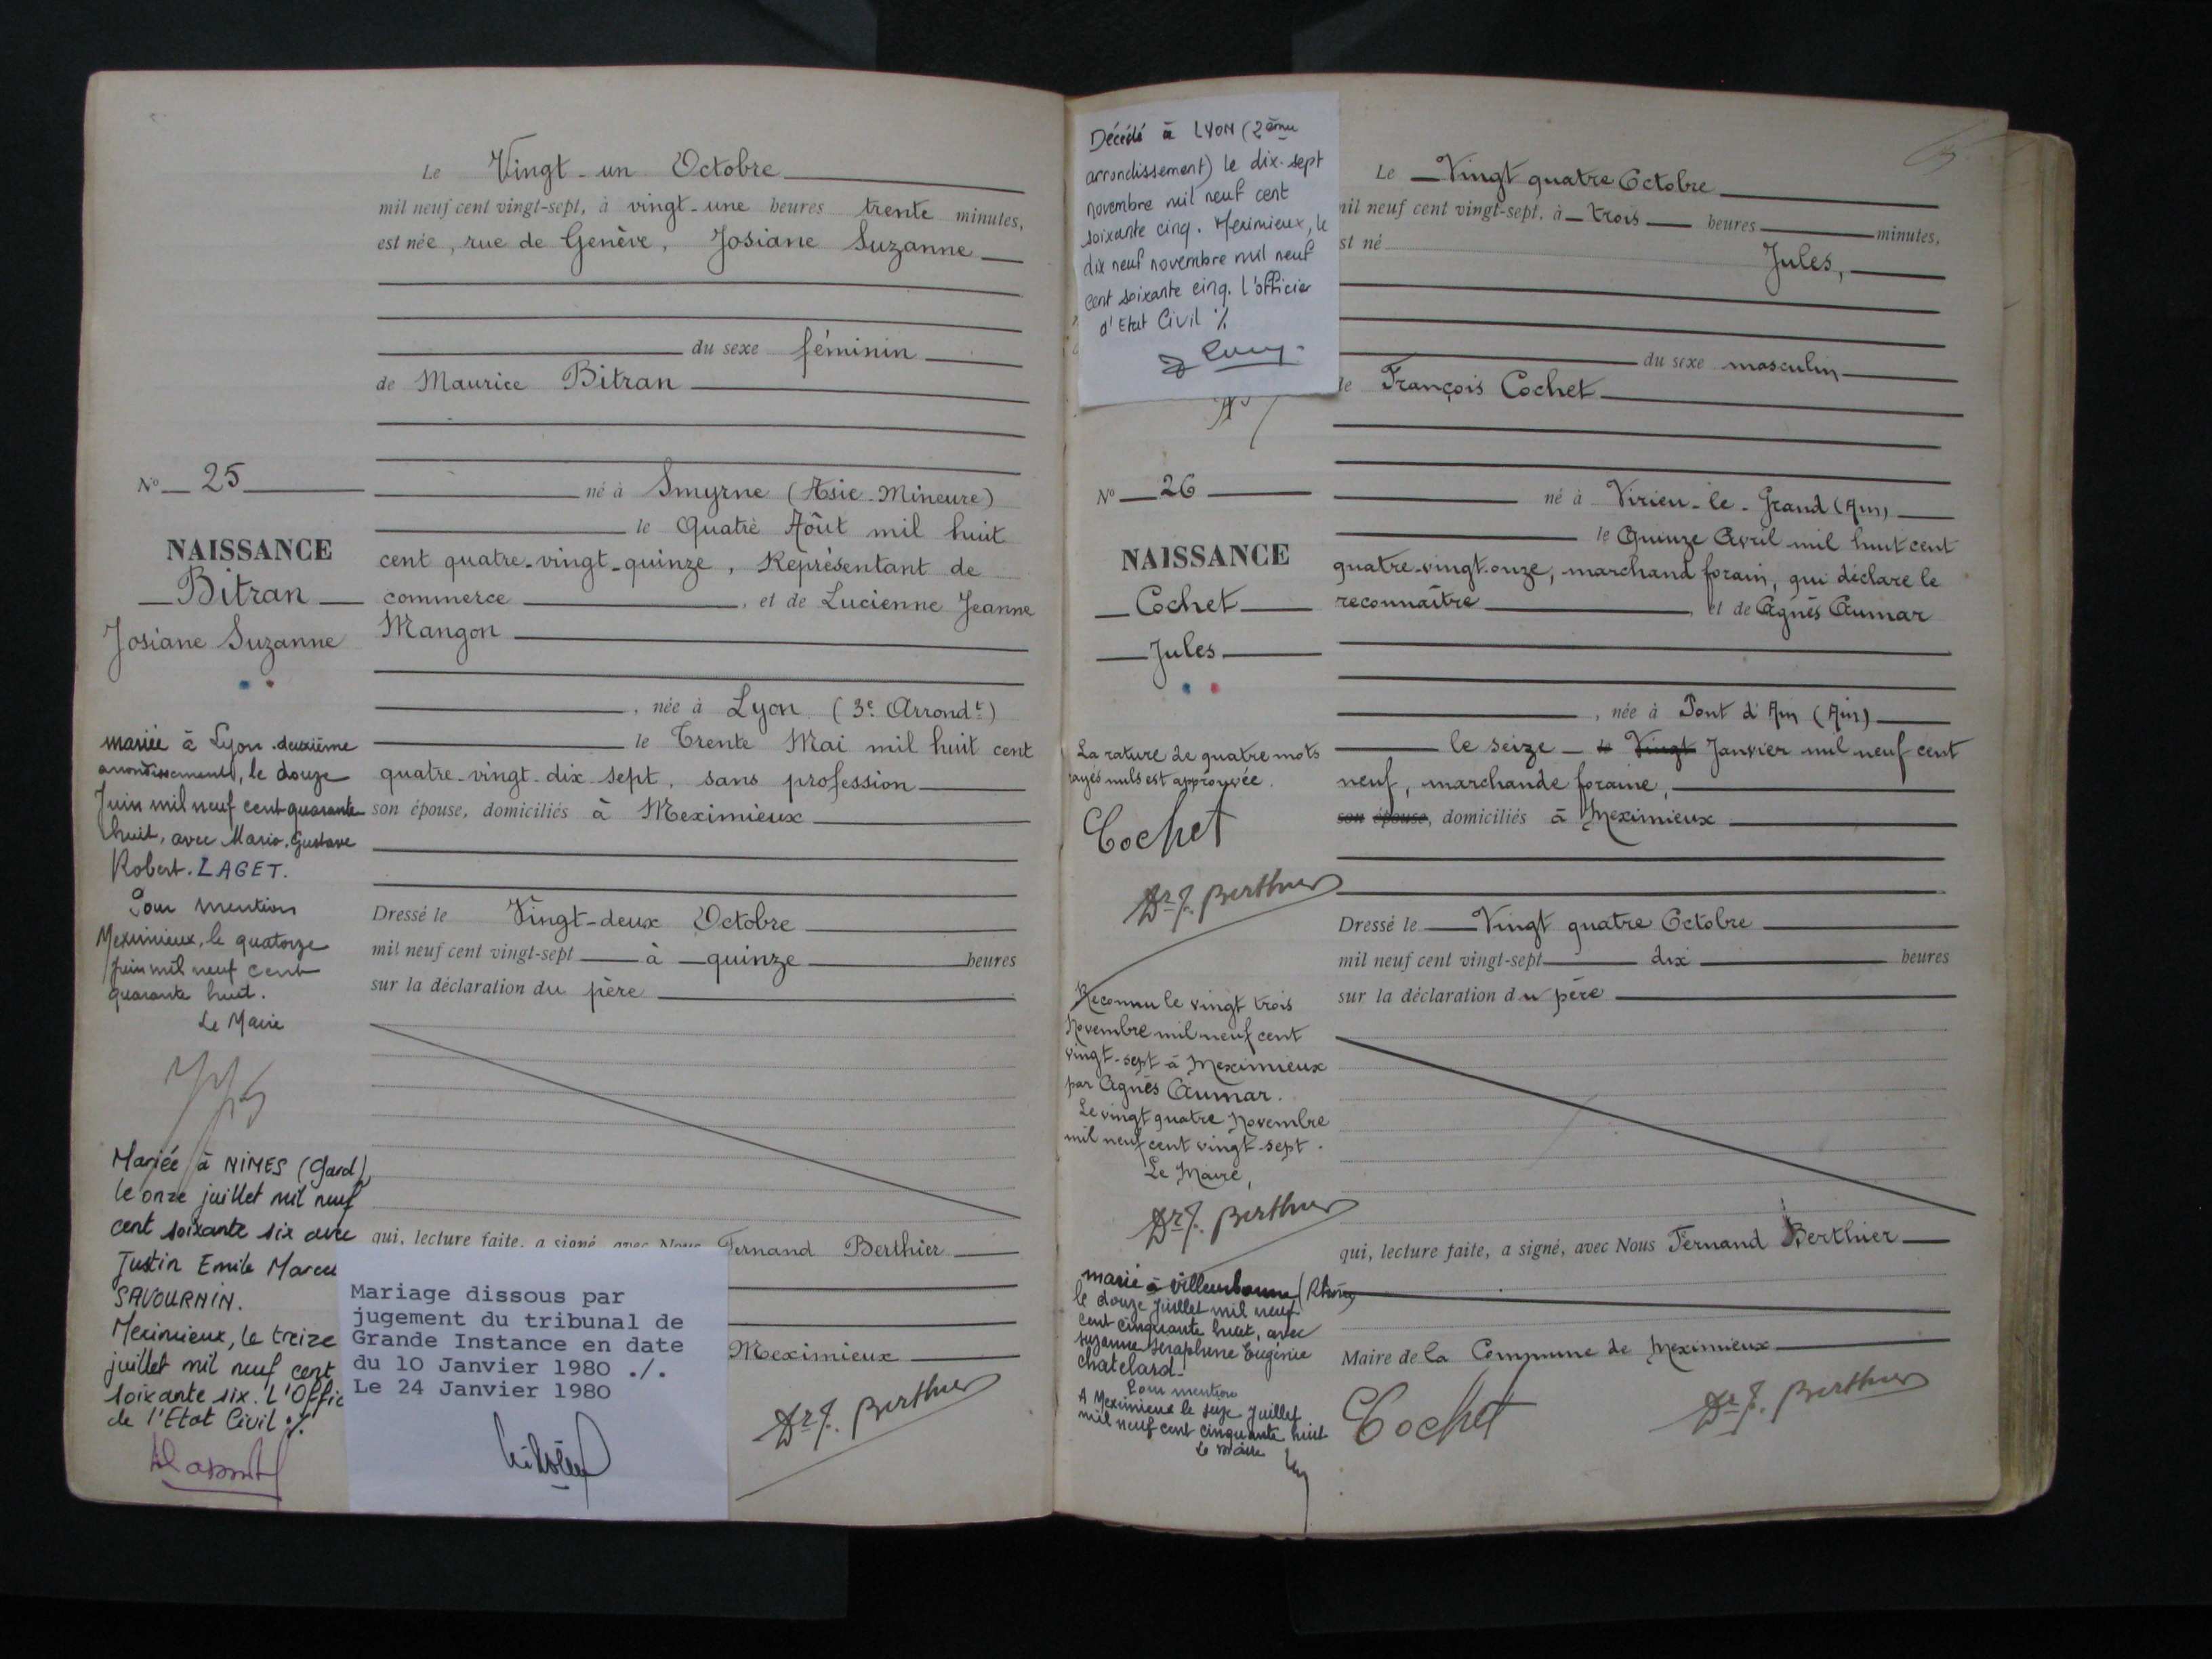 Le Vingt-un Octobre
mil neuf cent vingt-sept, à vingt-une heures trente minutes,
est née, rue de Genève, Josiane Suzanne
du sexe féminin
de Maurice Bitran
né à Smyrne (Asie-Mineure)
le Quatre Août mil huit
cent quatre-vingt-quinze, Représentant de
commerce, et de Lucienne Jeanne
Mangon
, née à Lyon (3e Arrondt)
le Trente Mai mil huit cent
quatre-vingt-dix-sept, sans profession
son épouse, domiciliés à Meximieux
Dressé le Vingt-deux Octobre
mil neuf cent vingt-sept à quinze heures
sur la déclaration du père
qui, lecture faite, a signé, avec Nous Fernand Berthier
Meximieux
Dr F. Berthier
No 25
NAISSANCE
Bitran
Josiane Suzanne
mariée à Lyon deuxième
arrondissement, le douze
Juin mil neuf cent quarante
huit, avec Mario. Gustave
Robert. LAGET.
Pour mention
Meximieux, le quatorze
Juin mil neuf cent
quarante huit.
Le Maire
Mariée à NIMES (Gard)
le onze juillet mil neuf
cent soixante six avec
Justin Emile Marcel
SAVOURNIN.
Meximieux, le treize
juillet mil neuf cent
soixante six. L'Offic
de l'Etat Civil ./.
Mariage dissous par
jugement du tribunal de
Grande Instance en date
du 10 Janvier 1980 ./.
Le 24 Janvier 1980
Décédé à LYON (2ème
arrondissement) le dix-sept
novembre mil neuf cent
soixante cinq. Meximieux, le
dix neuf novembre mil neuf
cent soixante cinq. L'officier
d'Etat Civil ./.
No 26
NAISSANCE
Cochet
Jules
La rature de quatre mots
rayés nuls est approuvée.
Cochet
Dr F. Berthier
Reconnu le vingt trois
Novembre mil neuf cent
vingt-sept à Meximieux
par Agnès Aumar.
Le vingt quatre Novembre
mil neuf cent vingt-sept.
Le Maire,
Dr F. Berthier
marié à Villeurbanne (Rhône)
le douze Juillet mil neuf
cent cinquante huit, avec
Suzanne Séraphine Eugénie
Chatelard.
Pour mention
A Meximieux le seize Juillet
mil neuf cent cinquante huit
Le maire
Le Vingt quatre Octobre
mil neuf cent vingt-sept, à trois heures minutes,
st né Jules,
du sexe masculin
de François Cochet
né à Virieu-le-Grand (Ain)
le Quinze Avril mil huit cent
quatre-vingt-onze, marchand forain, qui déclare le
reconnaître, et de Agnès Aumar
, née à Pont d'Ain (Ain)
le seize le Vingt Janvier mil neuf cent
neuf, marchande foraine,
son épouse, domiciliés à Meximieux
Dressé le Vingt quatre Octobre
mil neuf cent vingt-sept dix heures
sur la déclaration du père
qui, lecture faite, a signé, avec Nous Fernand Berthier
Maire de la Commune de Meximieux
Cochet
Dr F. Berthier